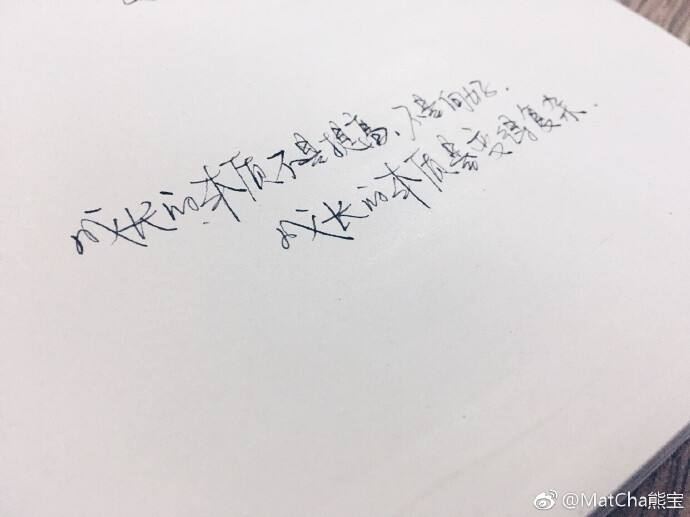 成长的本质不是提高、不是向好.
成长的本质是变得复杂.
@MatCha熊宝